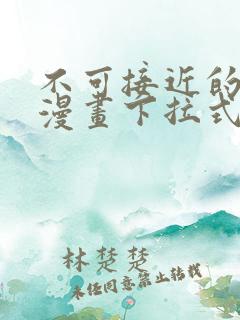 不可接近的
漫畫下拉式
林楚楚
未经同意禁止转载